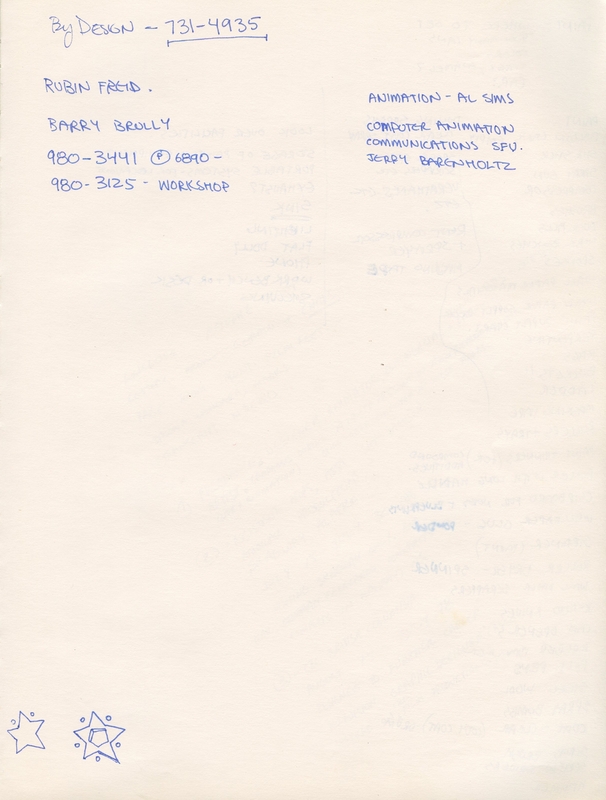 By DESIGN - 731-4935
RUBIN FREID.
BARRY BRULLY
980-3441 Ⓟ 6890-
980-3125 - WORKSHOP
ANIMATION - AL SIMS
COMPUTER ANIMATION
COMMUNICATIONS SFU.
JERRY BARENHOLTZ